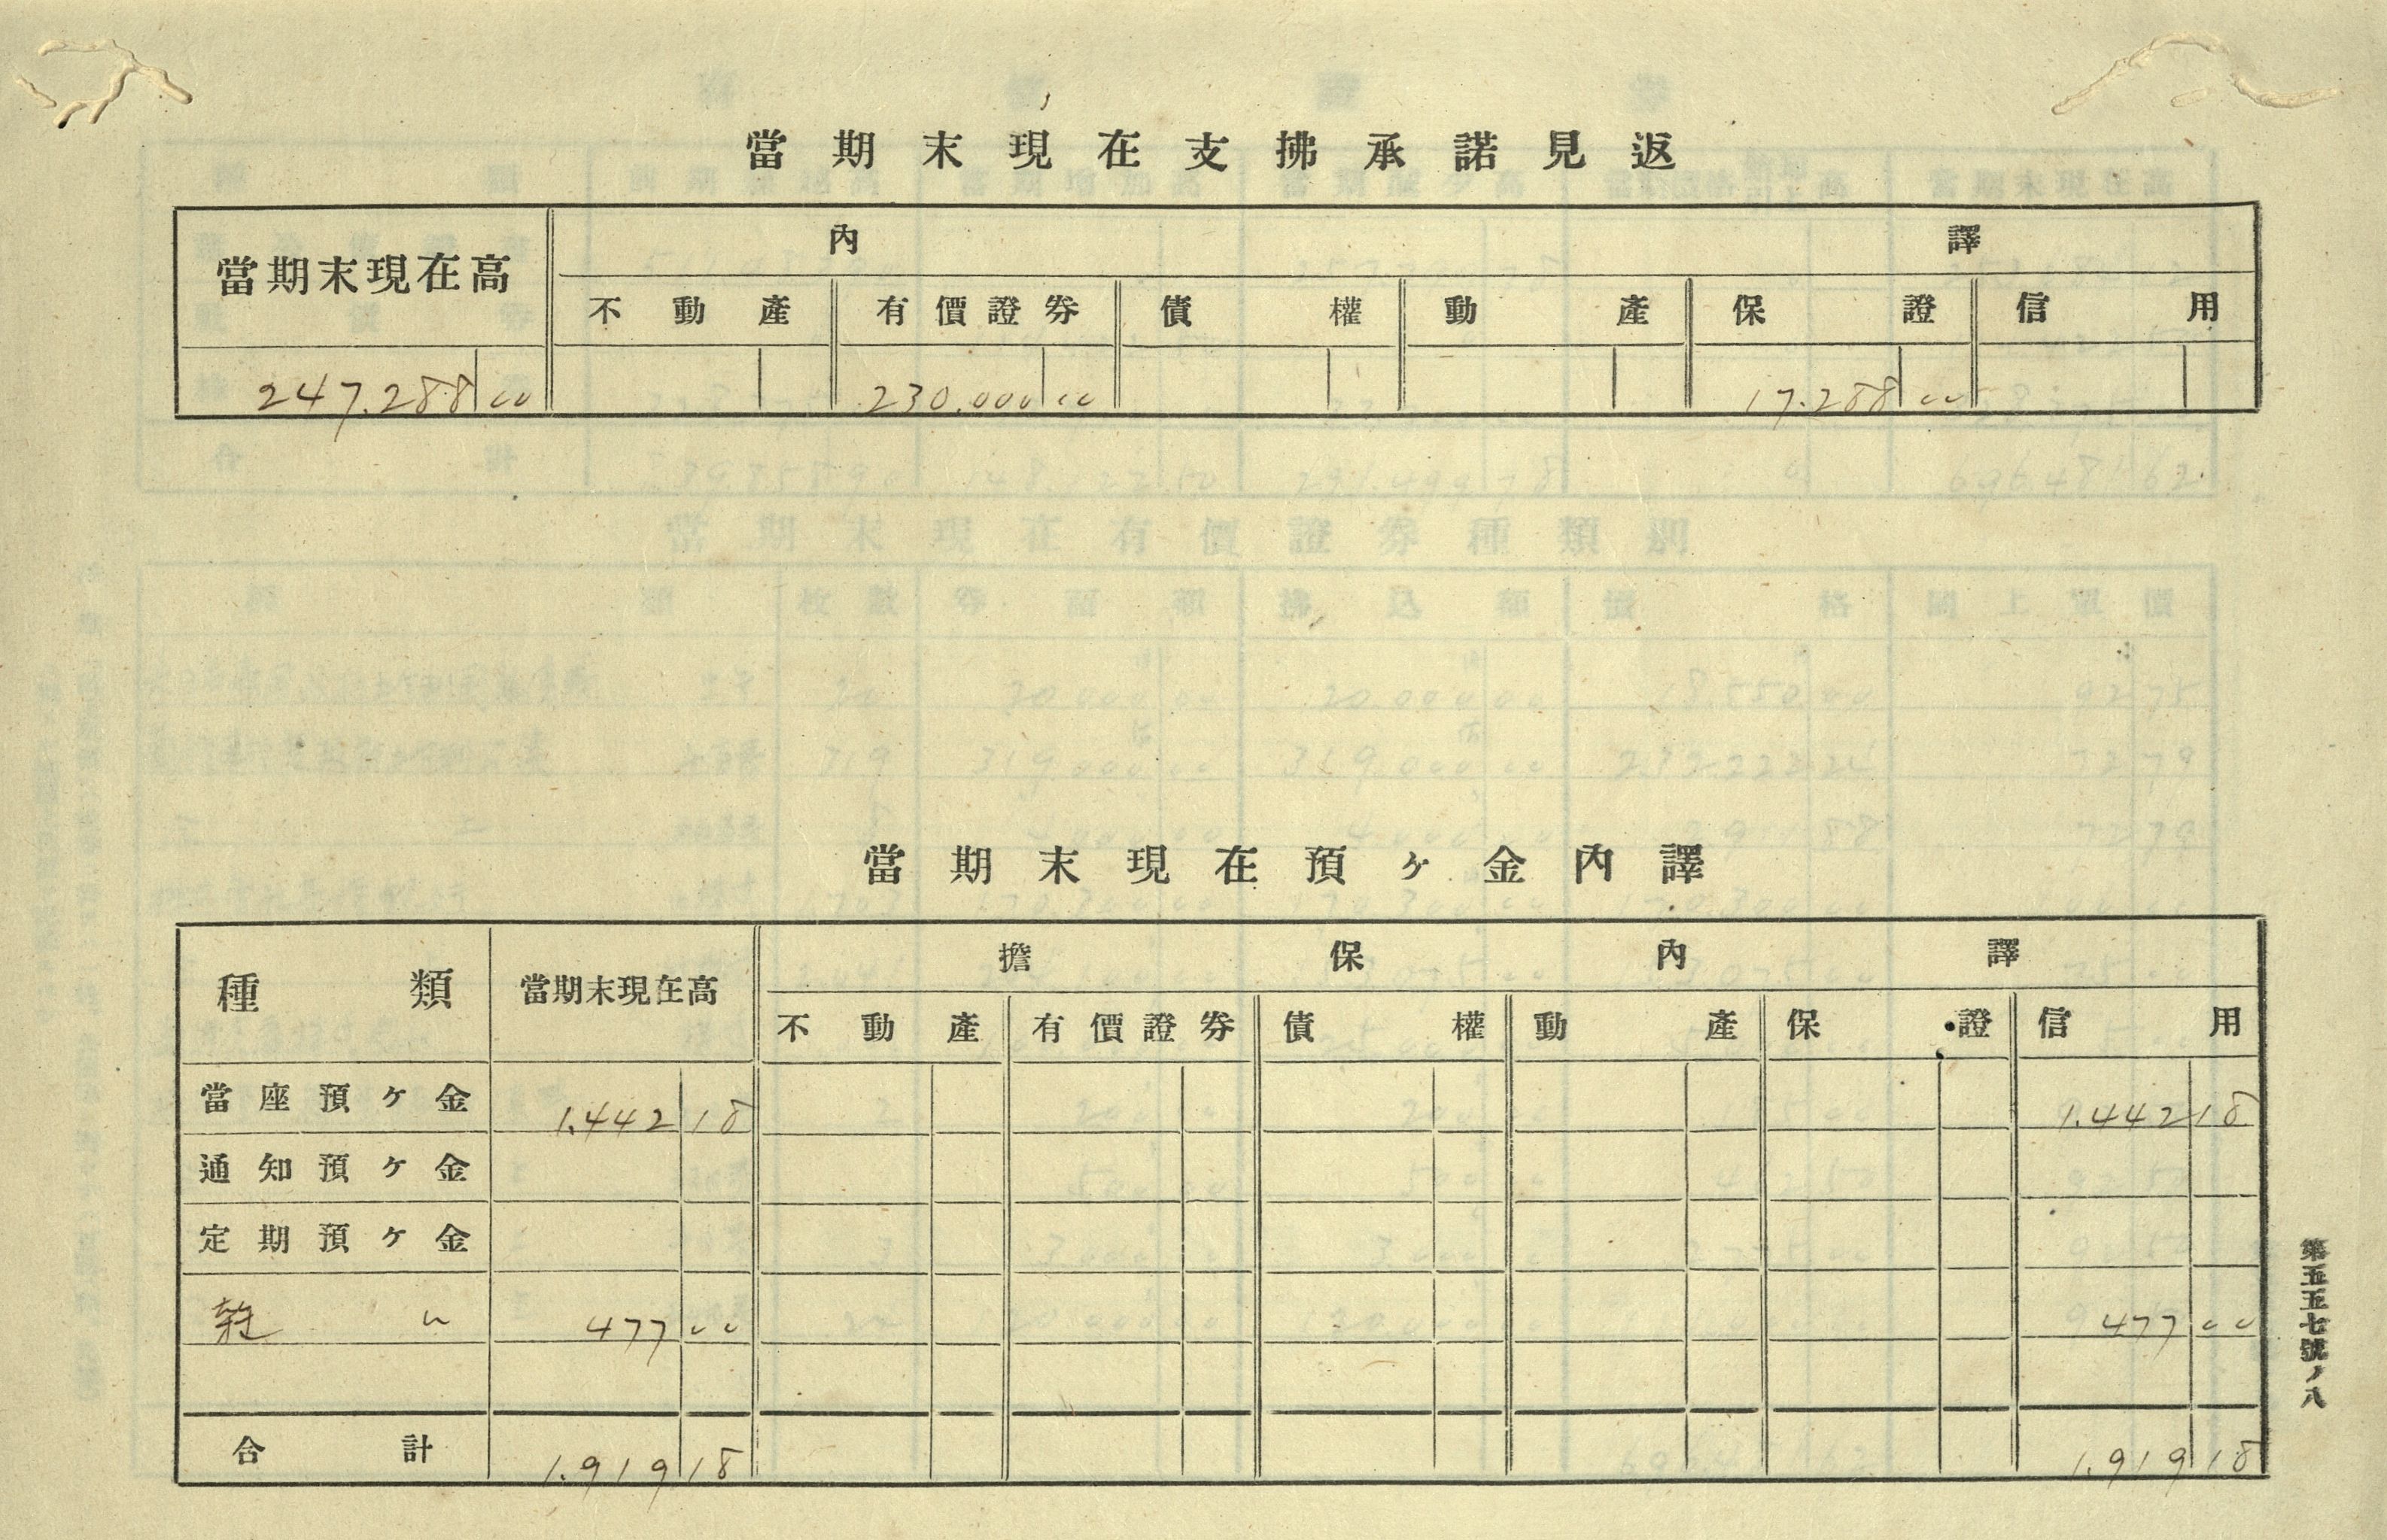 當期末現在支拂承諾見返
當期末現在高 內譯
不動產 有價證券 債權 動產 保證 信用
247.288 00 230.000 00 17.288 00
當期末現在預ヶ金內譯
種類 當期末現在高 擔保內譯
不動產 有價證券 債權 動產 保證 信用
當座預ヶ金 1.442 18 1.442 18
通知預ヶ金
定期預ヶ金
雜 〃 477 00 477 00
合計 1.919 18 1.919 18
第五五七號ノ八